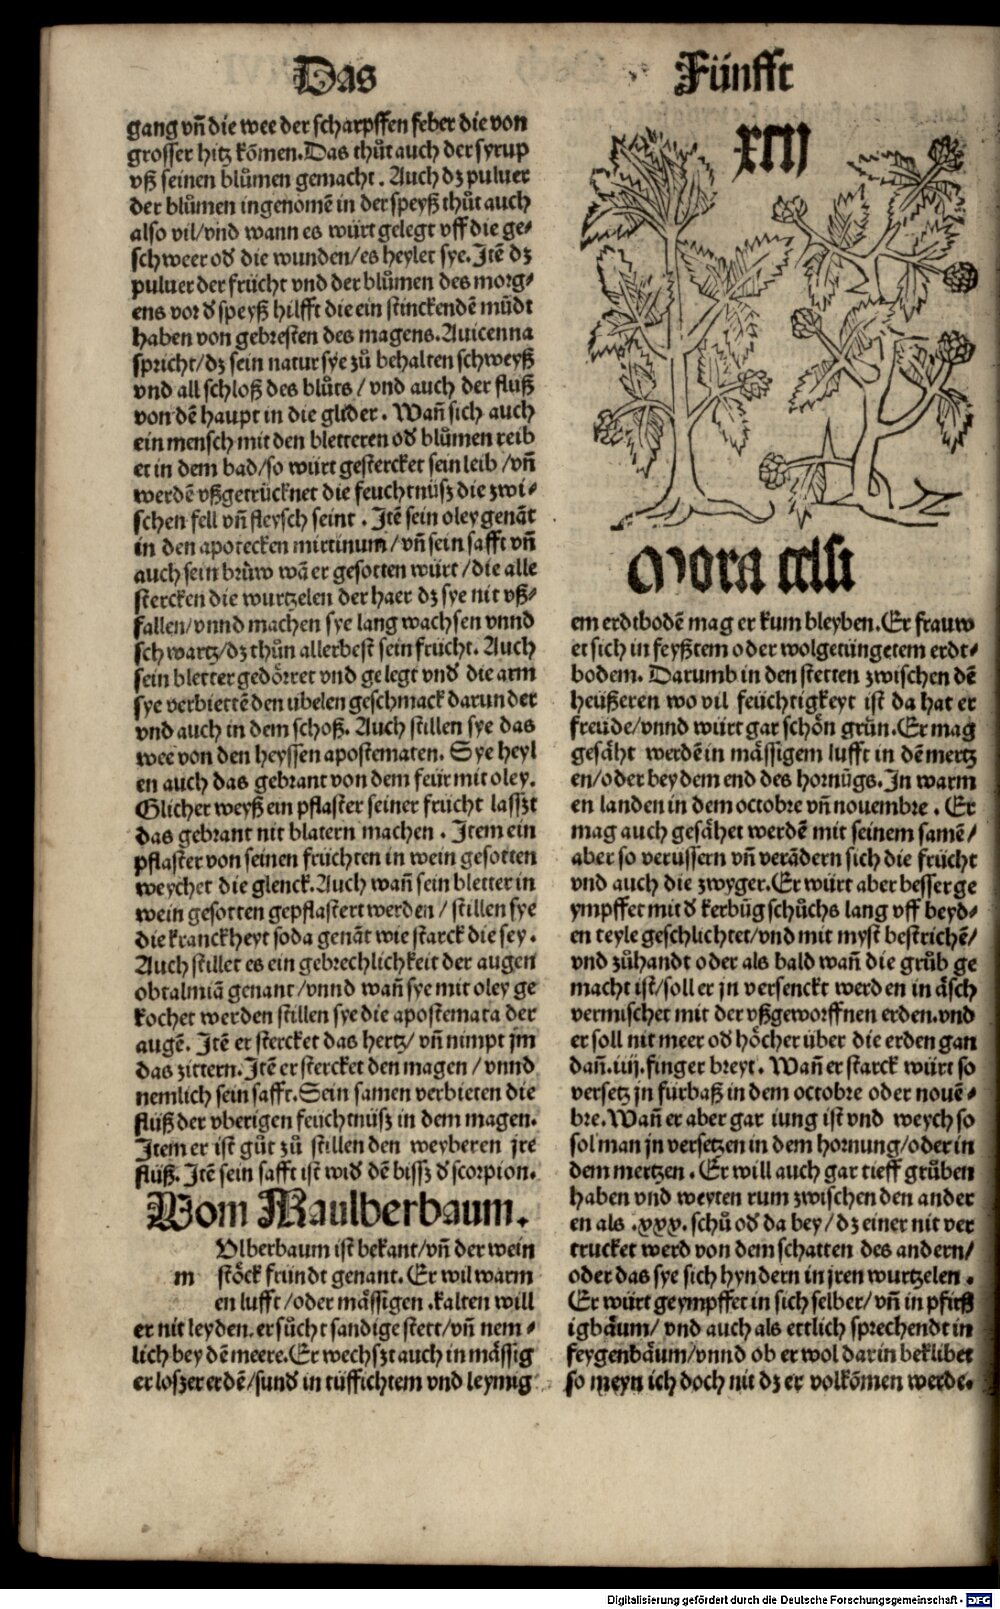 Das
Fünfft
gang vñ die wee der scharpffen feber die von
grosser hitz kōmen. Das thůt auch der syrup
vß seinen blůmen gemacht. Auch dz puluer
der blůmen ingenomē in der speyß thůt auch
also vil/vnd wann es würt gelegt vff die ge-
schweer oď die wunden/es heylet sye. Jtē dz
puluer der frücht vnd der blůmen des morg-
ens vor ď speyß hilfft die ein stinckendē mūdt
haben von gebresten des magens. Auicenna
spricht/dz sein natur sye zů behalten schweyß
vnd all schloß des blůts/vnd auch der fluß
von dē haupt in die glider. Wañ sich auch
ein mensch mit den bletteren oď blůmen reib
et in dem bad/so würt gestercket sein leib/vñ
werdē vßgetrücknet die feuchtnüsz die zwi-
schen fell vñ fleysch seint. Jtē sein oley genāt
in den apotecken mirtinum/vñ sein safft vñ
auch sein brůw wā er gesotten würt/die alle
stercken die wurtzelen der haer dz sye nit vß-
fallen/vnnd machen sye lang wachsen vnnd
schwartz/dz thůn allerbest sein frücht. Auch
sein bletter gedörret vnd gelegt vnď die arm
sye verbiettē den übelen geschmack darunder
vnd auch in dem schoß. Auch stillen sye das
wee von den heyssen apostematen. Sye heyl
en auch das gebrant von dem feür mit oley.
Glicher weyß ein pflaster seiner frücht lasszt
das gebrant nit blatern machen. Jtem ein
pflaster von seinen früchten in wein gesotten
weychet die glenck. Auch wañ sein bletter in
wein gesotten gepflastert werden/stillen sye
die kranckheyt soda genāt wie starck die sey.
Auch stillet es ein gebrechlichkeit der augen
obtalmiā genant/vnnd wañ sye mit oley ge
kochet werden stillen sye die apostemata der
augē. Jtē er stercket das hertz/vñ nimpt jm
das zittern. Jtē er stercket den magen/vnnd
nemlich sein safft. Sein samen verbieten die
flüß der vberigen feüchtnüsz in dem magen.
Jtem er ist gůt zů stillen den weyberen jre
flüß. Jtē sein safft ist wiď dē bissz ď scorpion.
Vom Maulberbaum.
Vlberbaum ist bekant/vñ der wein
m stöck fründt genant. Er wil warm
en lufft/oder mässigen. kalten will
er nit leyden. er sůcht sandige stett/vñ nem-
lich bey dē meere. Er wechszt auch in mässig
er loszer erdē/sunď in tüffichtem vnd leymig
xcij
Mora celsi
em erdtbodē mag er kum bleyben. Er frauw
et sich in feyßtem oder wolgetüngetem erdt-
bodem. Darumb in den stetten zwischen dē
heüßeren wo vil feüchtigkeyt ist da hat er
freüde/vnnd würt gar schön grün. Er mag
gesäht werdē in mässigem lufft in dē mertz
en/oder bey dem end des hornūgs. Jn warm
en landen in dem octobre vñ nouembre. Er
mag auch gesähet werdē mit seinem samē/
aber so verüssern vñ verādern sich die frücht
vnd auch die zwyger. Er würt aber besser ge
ympffet mit ď kerbūg schůchs lang vff beyd-
en teyle geschlichtet/vnd mit myst bestrichē/
vnd zůhandt oder als bald wañ die grůb ge
macht ist/soll er jn versenckt werden in äsch
vermischet mit der vßgeworffnen erden. vnd
er soll nit meer oď höcher über die erden gan
dañ .iiij. finger breyt. Wañ er starck würt so
versetz jn fürbaß in dem octobre oder nouē-
bre. Wañ er aber gar iung ist vnd weych so
sol man jn versetzen in dem hornung/oder in
dem mertzen. Er will auch gar tieff grůben
haben vnd weyten rum zwischen den ander
en als .xxx. schů oď da bey/dz einer nit ver
trucket werd von dem schatten des andern/
oder das sye sich hyndern in jren wurtzelen.
Er würt geympffet in sich selber/vñ in pfirß
igbäum/vnd auch als ettlich sprechendt in
feygenbäum/vnnd ob er wol darin beklibet
so meyn ich doch nit dz er volkōmen werde.
Digitalisierung gefördert durch die Deutsche Forschungsgemeinschaft - DFG